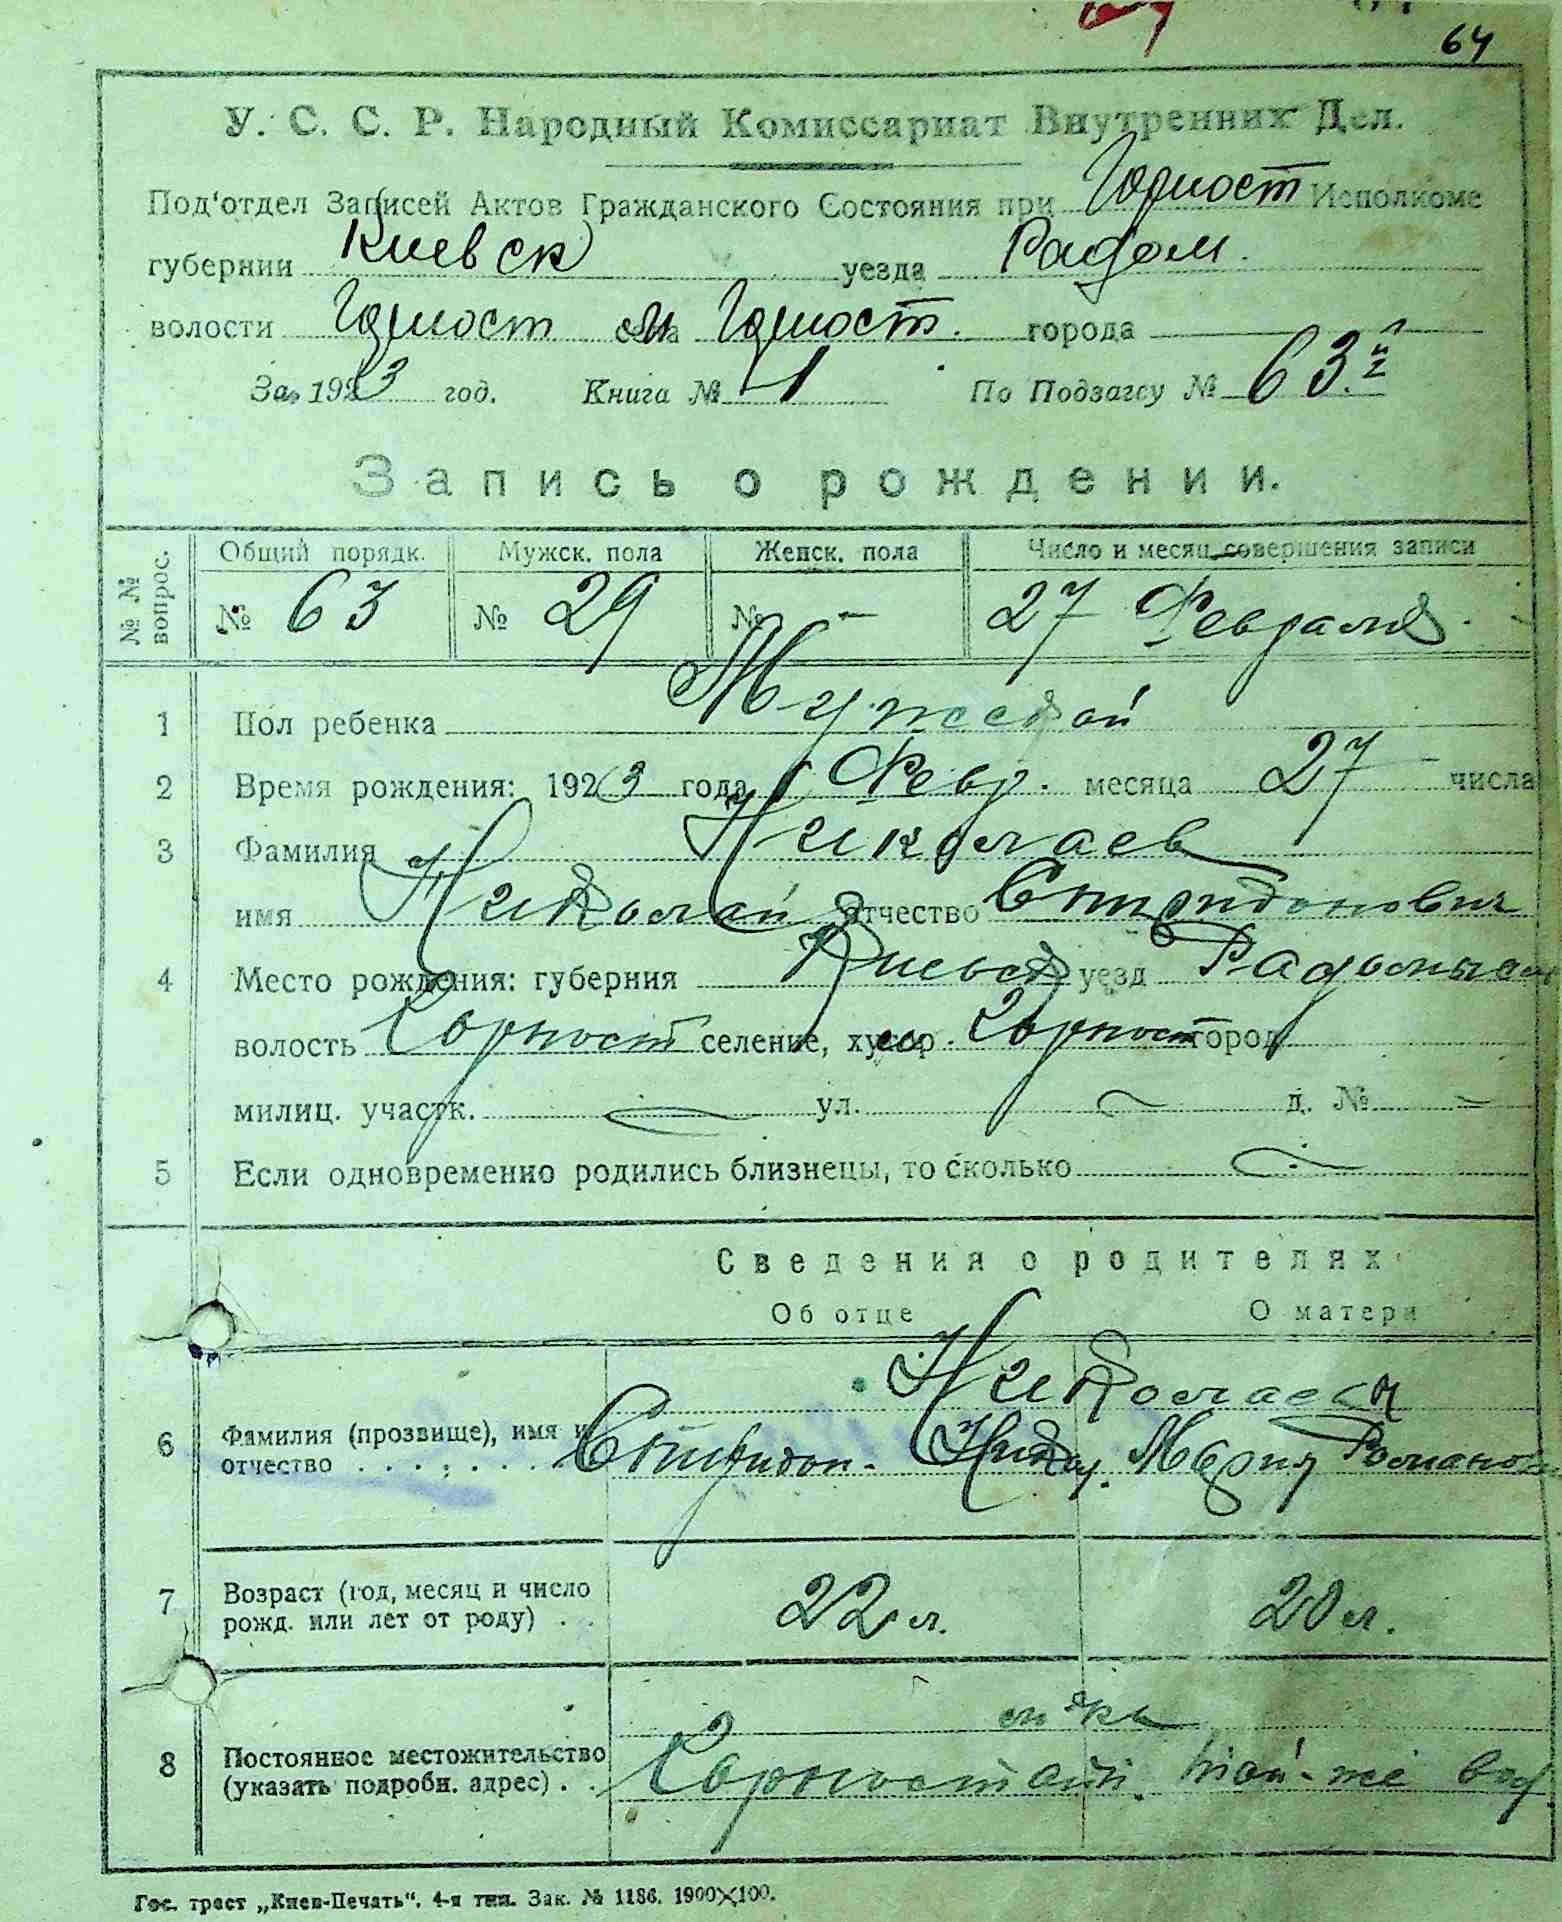 64
У. С. С. Р. Народный Комиссариат Внутренних Дел.
Под'отдел Записей Актов Гражданского Состояния при Горност Исполкоме
губернии Киевск уезда Радом.
волости Горност м Горност. города
За 1923 год. Книга № 1 По Подзагсу № 63.
Запись о рождении.
№ № вопрос. Общий порядк. Мужск. пола Женск. пола Число и месяц совершения записи
№ 63 № 29 № — 27 Февраля.
1 Пол ребенка Мужской
2 Время рождения: 1923 года Февр. месяца 27 числа
3 Фамилия Николаев
имя Николай отчество Спиридонович
4 Место рождения: губерния Киевск уезд Радомысл
волость Горност селение, хутор м. Горност город
милиц. участк. — ул. — д. № —
5 Если одновременно родились близнецы, то сколько —
Сведения о родителях
Об отце О матери
Николаевы
6 Фамилия (прозвище), имя и Спиридон. Никол. Мария Романов
отчество . . . . . . .
7 Возраст (год, месяц и число 22 л. 20 л.
рожд. или лет от роду) . .
8 Постоянное местожительство Горностай той-же вол.
(указать подробн. адрес) . .
Гос. трест „Киев-Печать“. 4-я тип. Зак. № 1186. 1900×100.